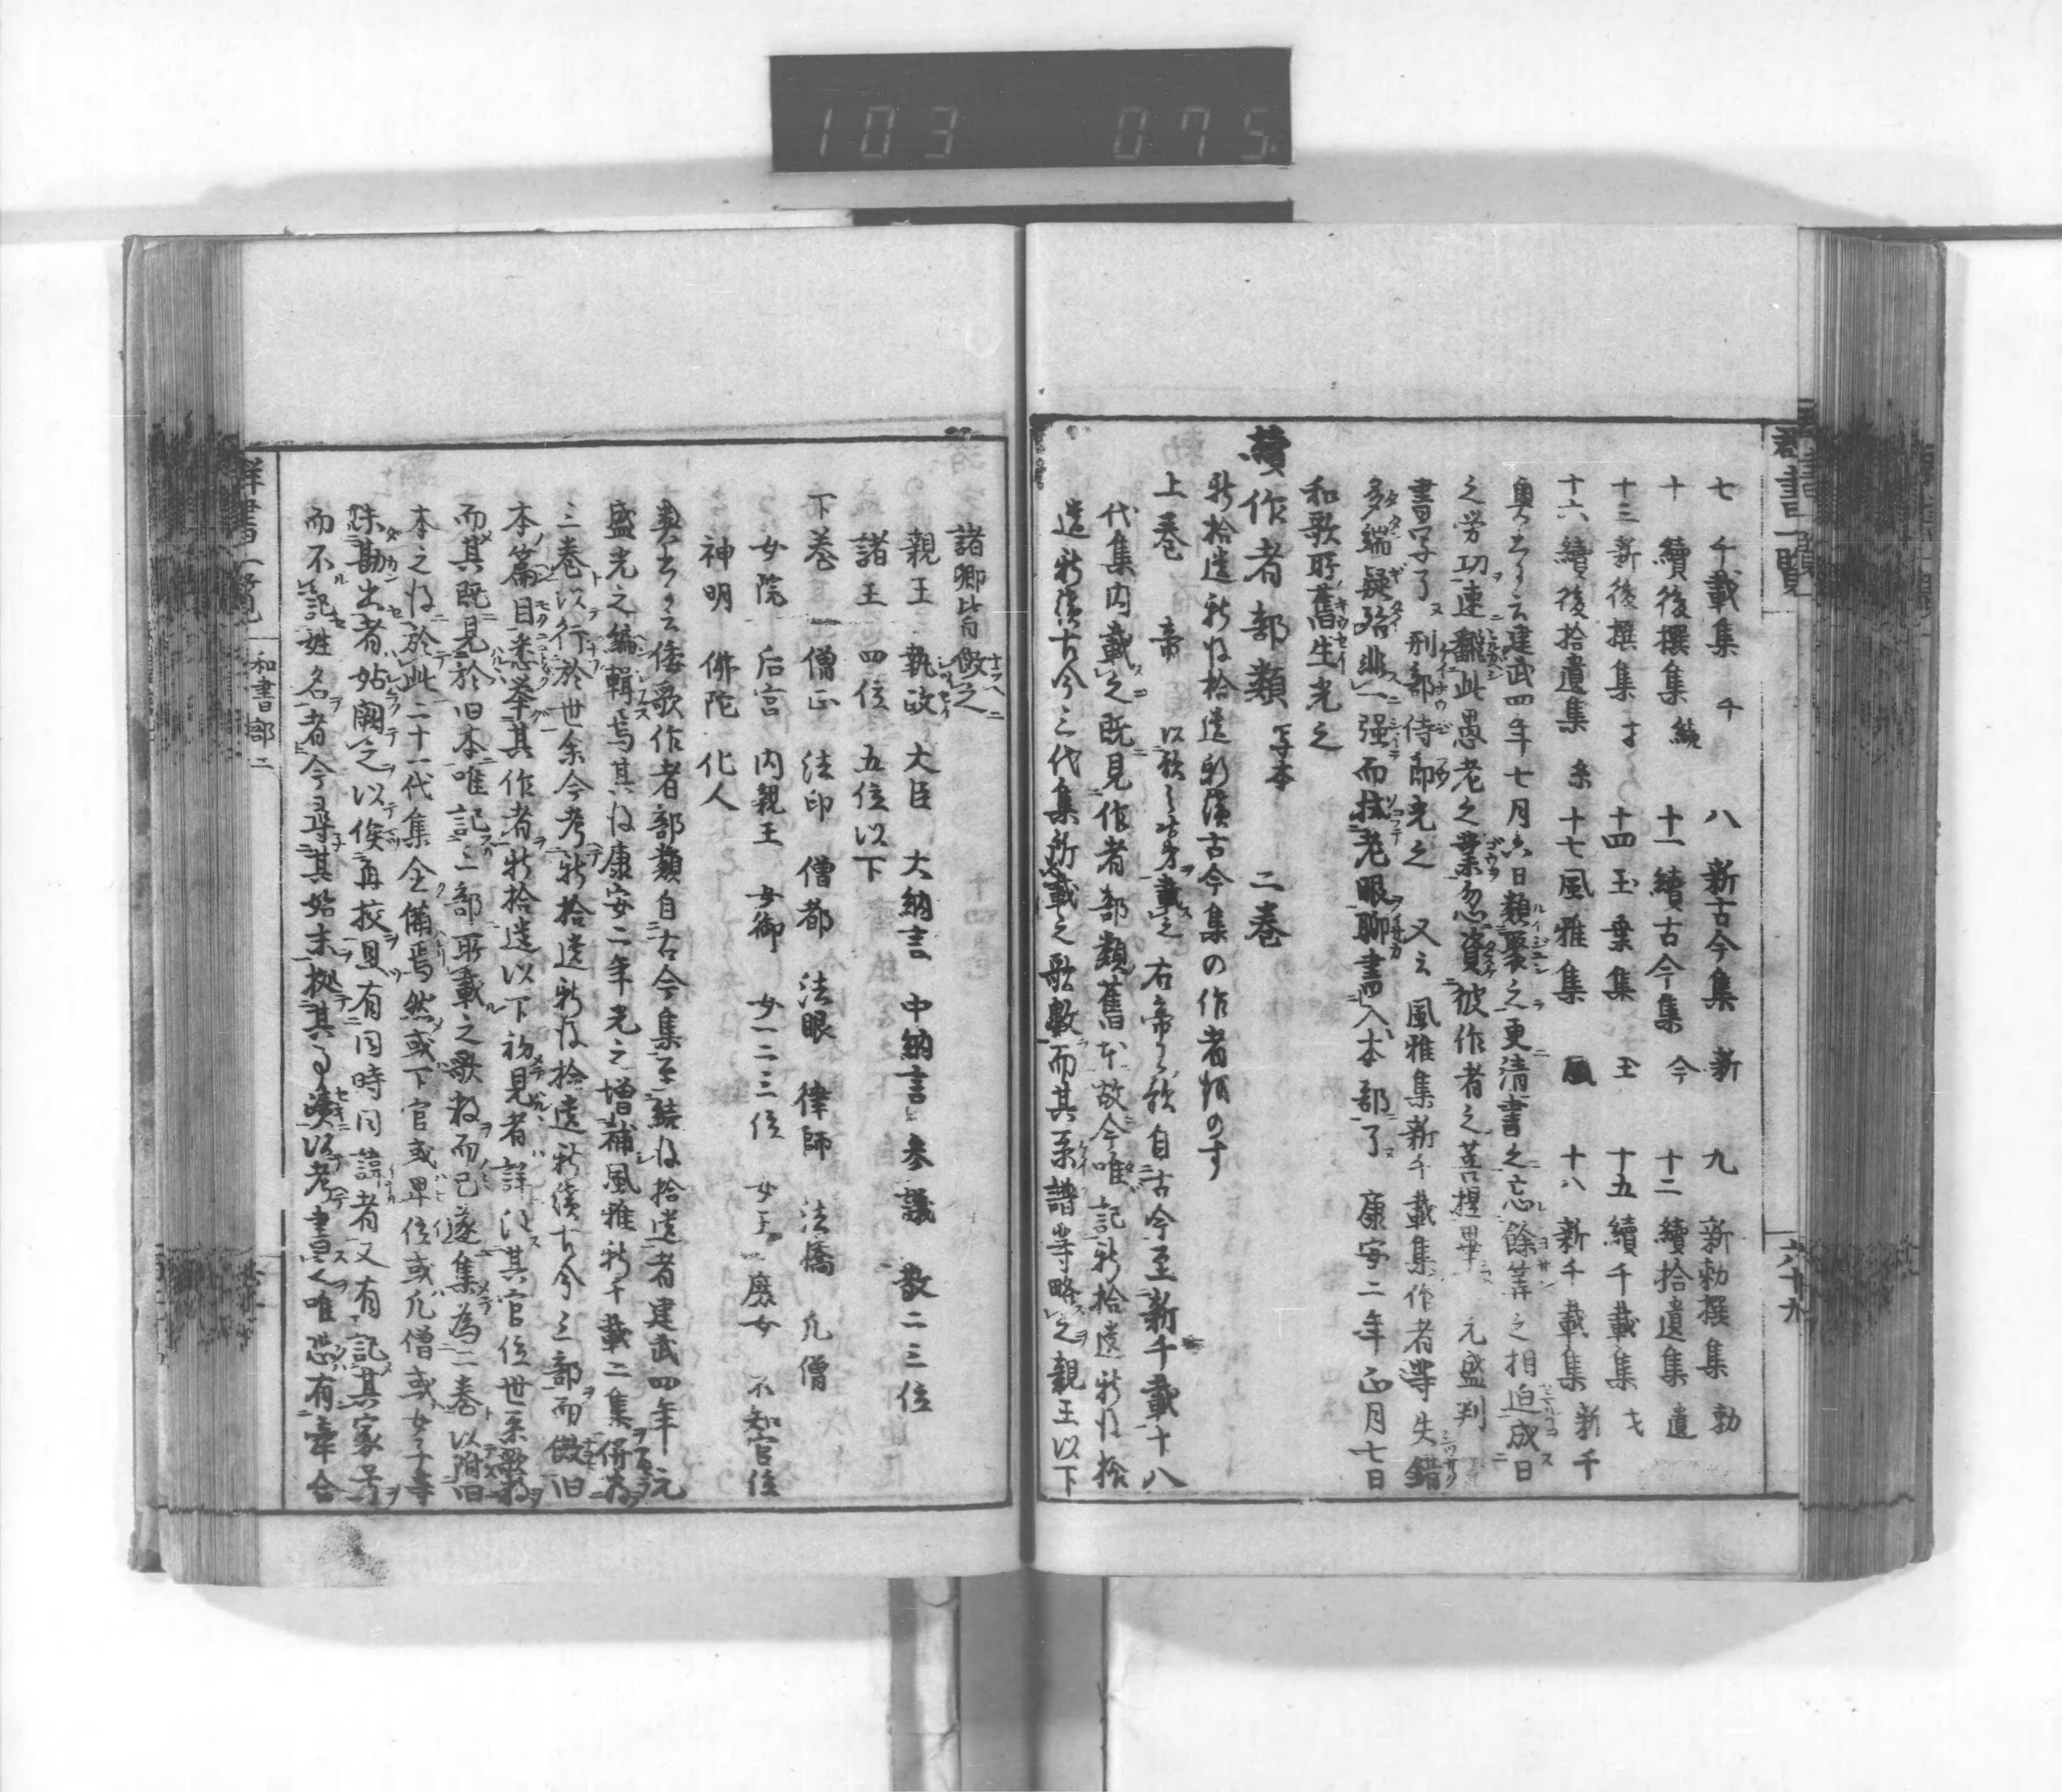 103 075
群書一覧
六十九
七 千載集 千 八 新古今集 新 九 新勅撰集 勅
十 續後撰集 続 十一 續古今集 今 十二 續拾遺集 遺
十三 新後撰集 十四 玉葉集 玉 十五 續千載集
十六 續後拾遺集 十七 風雅集 風 十八 新千載集 新千
奥書云建武四年七月六日類聚之更清書之忘餘算之相迫成日
之労功速翻此愚老之業忽資彼作者之菩提畢 元盛判
書写了 刑部侍郎光之 又云風雅集新千載集作者等失錯
多端疑殆非一强而拭老眼聊書入本部了 康安二年正月七日
和歌所舊生光之
續作者部類 写本 二巻
新拾遺新後拾遺新續古今集の作者類のす
上巻 帝 以歌之次才載之 右帝之歌自古今至新千載十八
代集内載之既見作者部類舊本故今唯記新拾遺新後拾
遺新續古今三代集所載之歌數而其系譜等略之親王以下
諸卿皆倣之
親王 執政 大臣 大納言 中納言 参議 散二三位
諸王 四位 五位以下
下巻 僧正 法印 僧都 法眼 律師 法橋 凡僧
女院 后宮 内親王 女御 女一二三位 女王 庶女 不知官位
神明 佛陀 化人
奥書云倭歌作者部類自古今集至続後拾遺者建武四年元
盛光之編輯焉其後康安二年光之増補風雅新千載二集併為
三巻以行於世余今考新拾遺新後拾遺新續古今三部而倣旧
本篇目悉挙其作者新拾遺以下初見者詳註其官位世系歌數
而其既見於旧本唯記三部所載之歌數而已遂集為二巻以附旧
本之後於此二十一代集全備焉然或下官或卑位或凡僧或女子等
未勘出者姑闕之以俟再挍且有同時同諱者又有記其家号
而不記姓名者今尋其始末拠其事蹟以考書之唯恐有牽合
群書一覧 和書部二